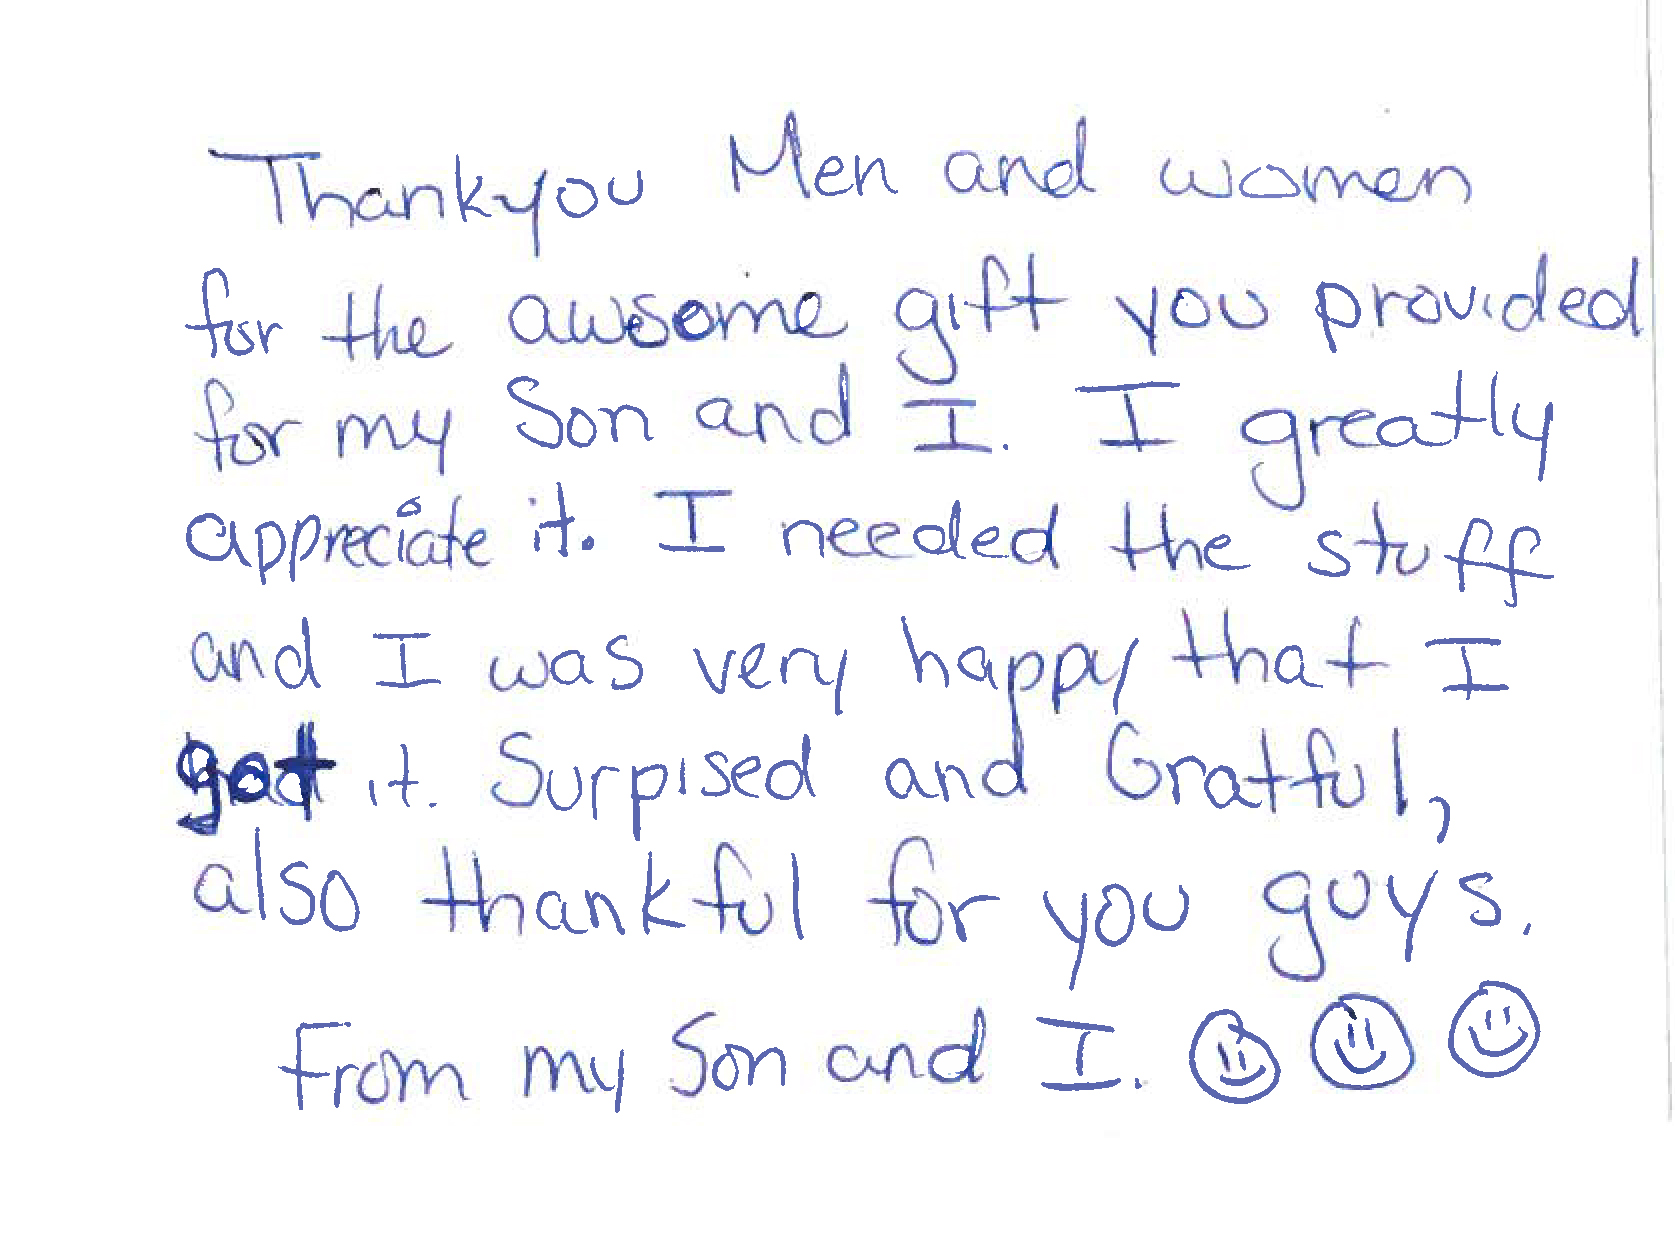 Thankyou Men and women
for the awsome gift you provided
for my Son and I. I greatly
appreciate it. I needed the stuff
and I was very happy that I
got it. Surpised and Gratful,
also thankful for you guys.
From my Son and I.